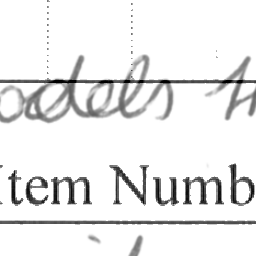 odels
Item Numb